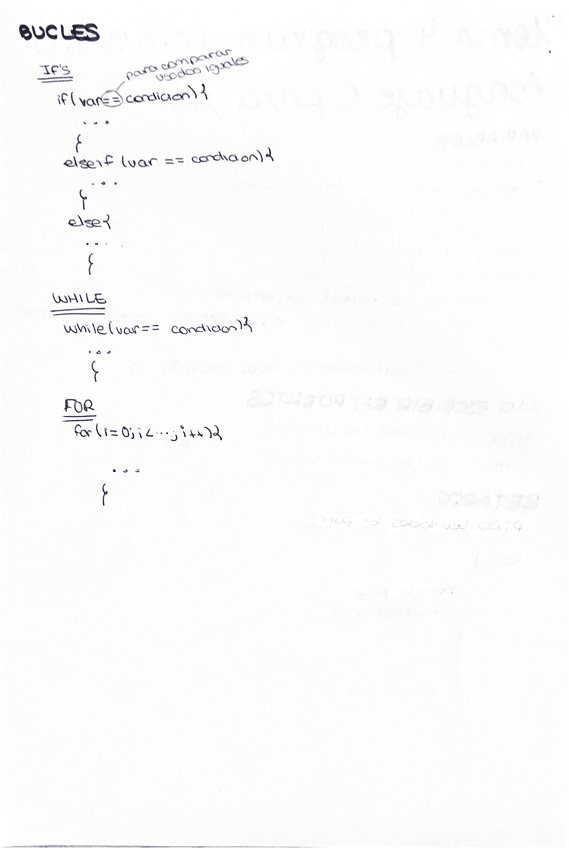 BUCLES
IF'S
para comparar
usados iguales
if(var== condicion){
...
}
elseif (var == condicion){
...
}
else{
...
}
WHILE
while(var== condicion){
...
}
FOR
for(i=0;i<...;i++){
...
}